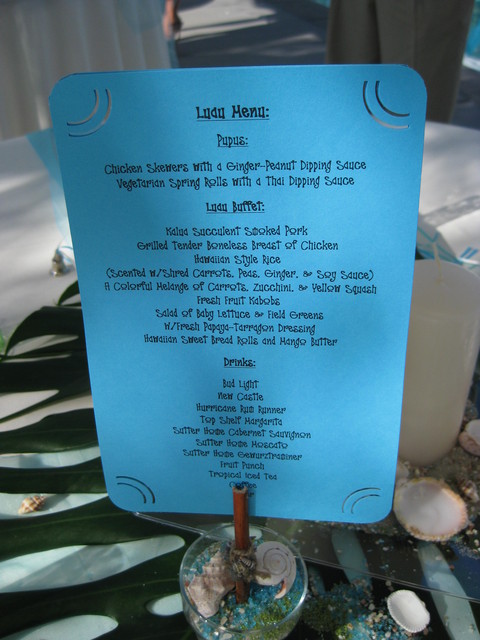 Luau Menu:
Pupus:
Chicken Skewers with a Ginger-Peanut Dipping Sauce
Vegetarian Spring Rolls with a Thai Dipping Sauce
Luau Buffet:
Kalua Succulent Smoked Pork
Grilled Tender Boneless Breast of Chicken
Hawaiian Style Rice
(Scented w/Shred Carrots, Peas, Ginger, & Soy Sauce)
A Colorful Melange of Carrots, Zucchini, & Yellow Squash
Fresh Fruit Kabobs
Salad of Baby Lettuce & Field Greens
w/Fresh Papaya-Tarragon Dressing
Hawaiian Sweet Bread Rolls and Mango Butter
Drinks:
Bud Light
New Castle
Hurricane Rum Runner
Top Shelf Margarita
Sutter Home Cabernet Sauvignon
Sutter Home Moscato
Sutter Home Gewurztraminer
Fruit Punch
Tropical Iced Tea
Coffee